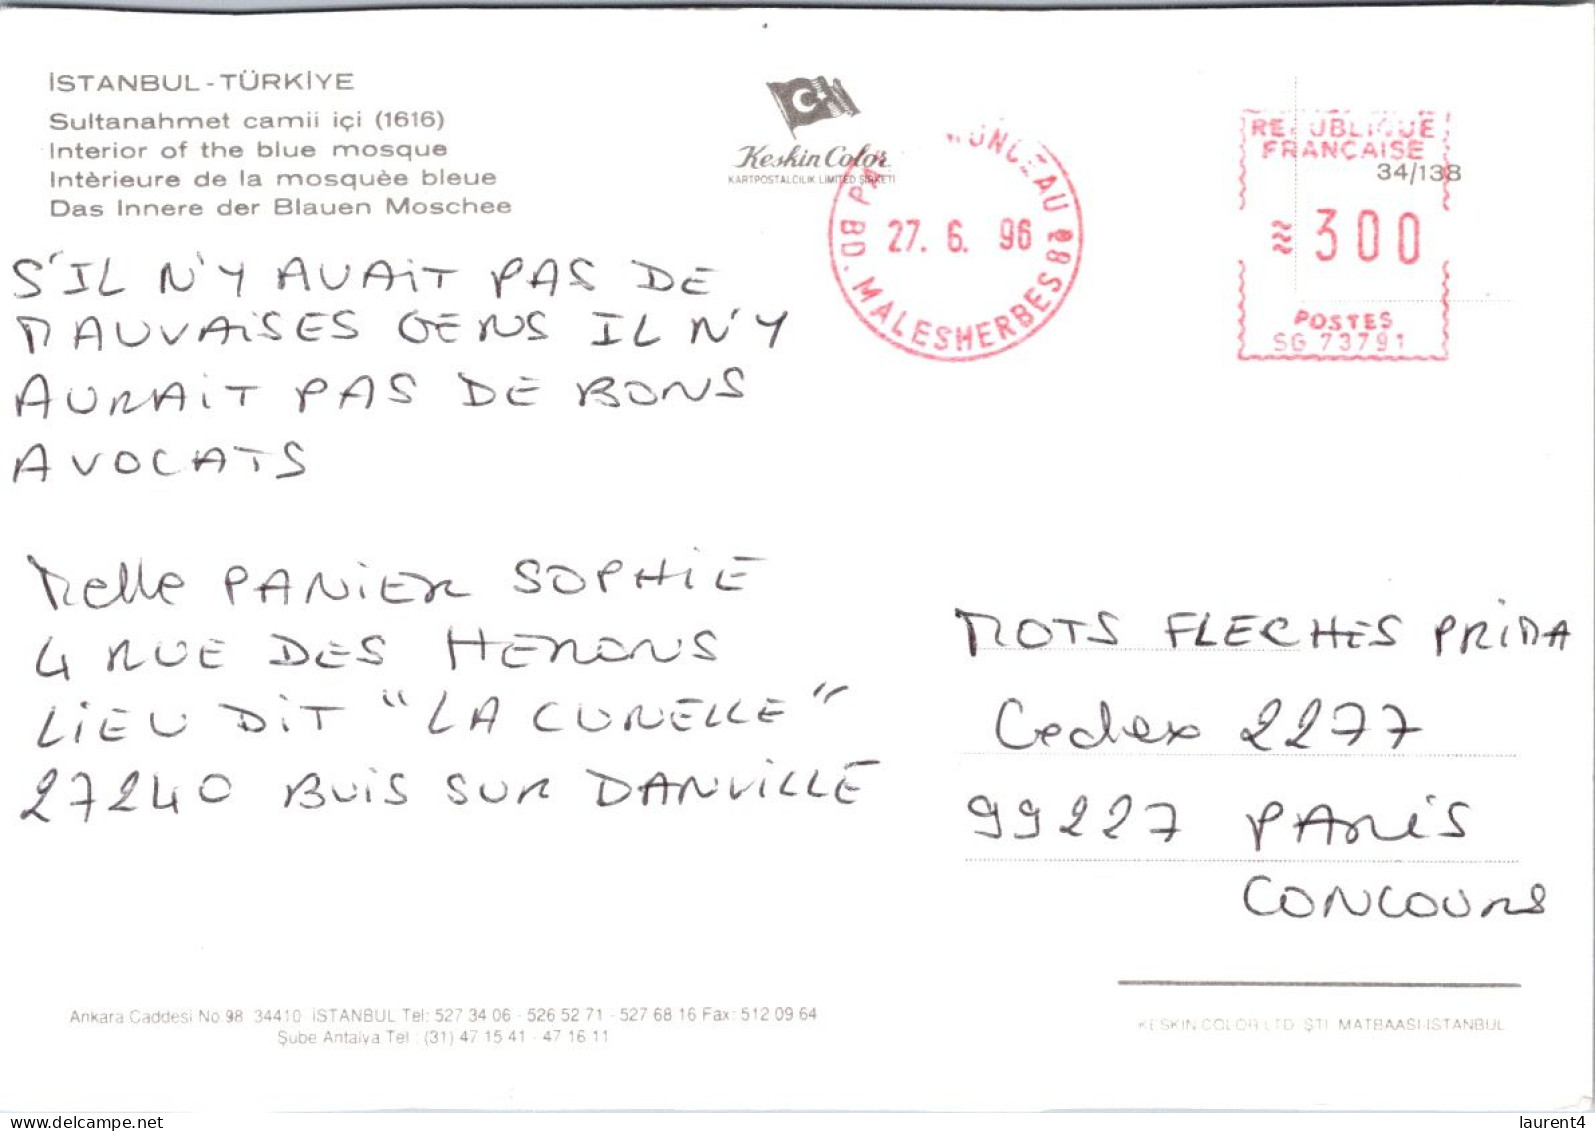 İSTANBUL - TÜRKİYE
Sultanahmet camii içi (1616)
Interior of the blue mosque
Intèrieure de la mosquèe bleue
Das Innere der Blauen Moschee
Keskin Color
KARTPOSTALCILIK LIMITED ŞİRKETİ
BD. MALESHERBES
27. 6. 96
REPUBLIQUE
FRANÇAISE
34/138
300
POSTES
SG 73791
S'IL N'Y AVAIT PAS DE
MAUVAISES GENS IL N'Y
AURAIT PAS DE BONS
AVOCATS
Melle PANIER SOPHIE
4 RUE DES HERONS
LIEU DIT "LA CURELLE"
27240 BUIS SUR DANVILLE
MOTS FLECHES PRIMA
Cedex 2277
99227 PARIS
CONCOURS
Ankara Caddesi No 98 34410 İSTANBUL Tel: 527 34 06 - 526 52 71 - 527 68 16 Fax: 512 09 64
Şube Antalya Tel : (31) 47 15 41 - 47 16 11
KESKIN COLOR LTD. ŞTİ. MATBAASI-İSTANBUL
laurent4